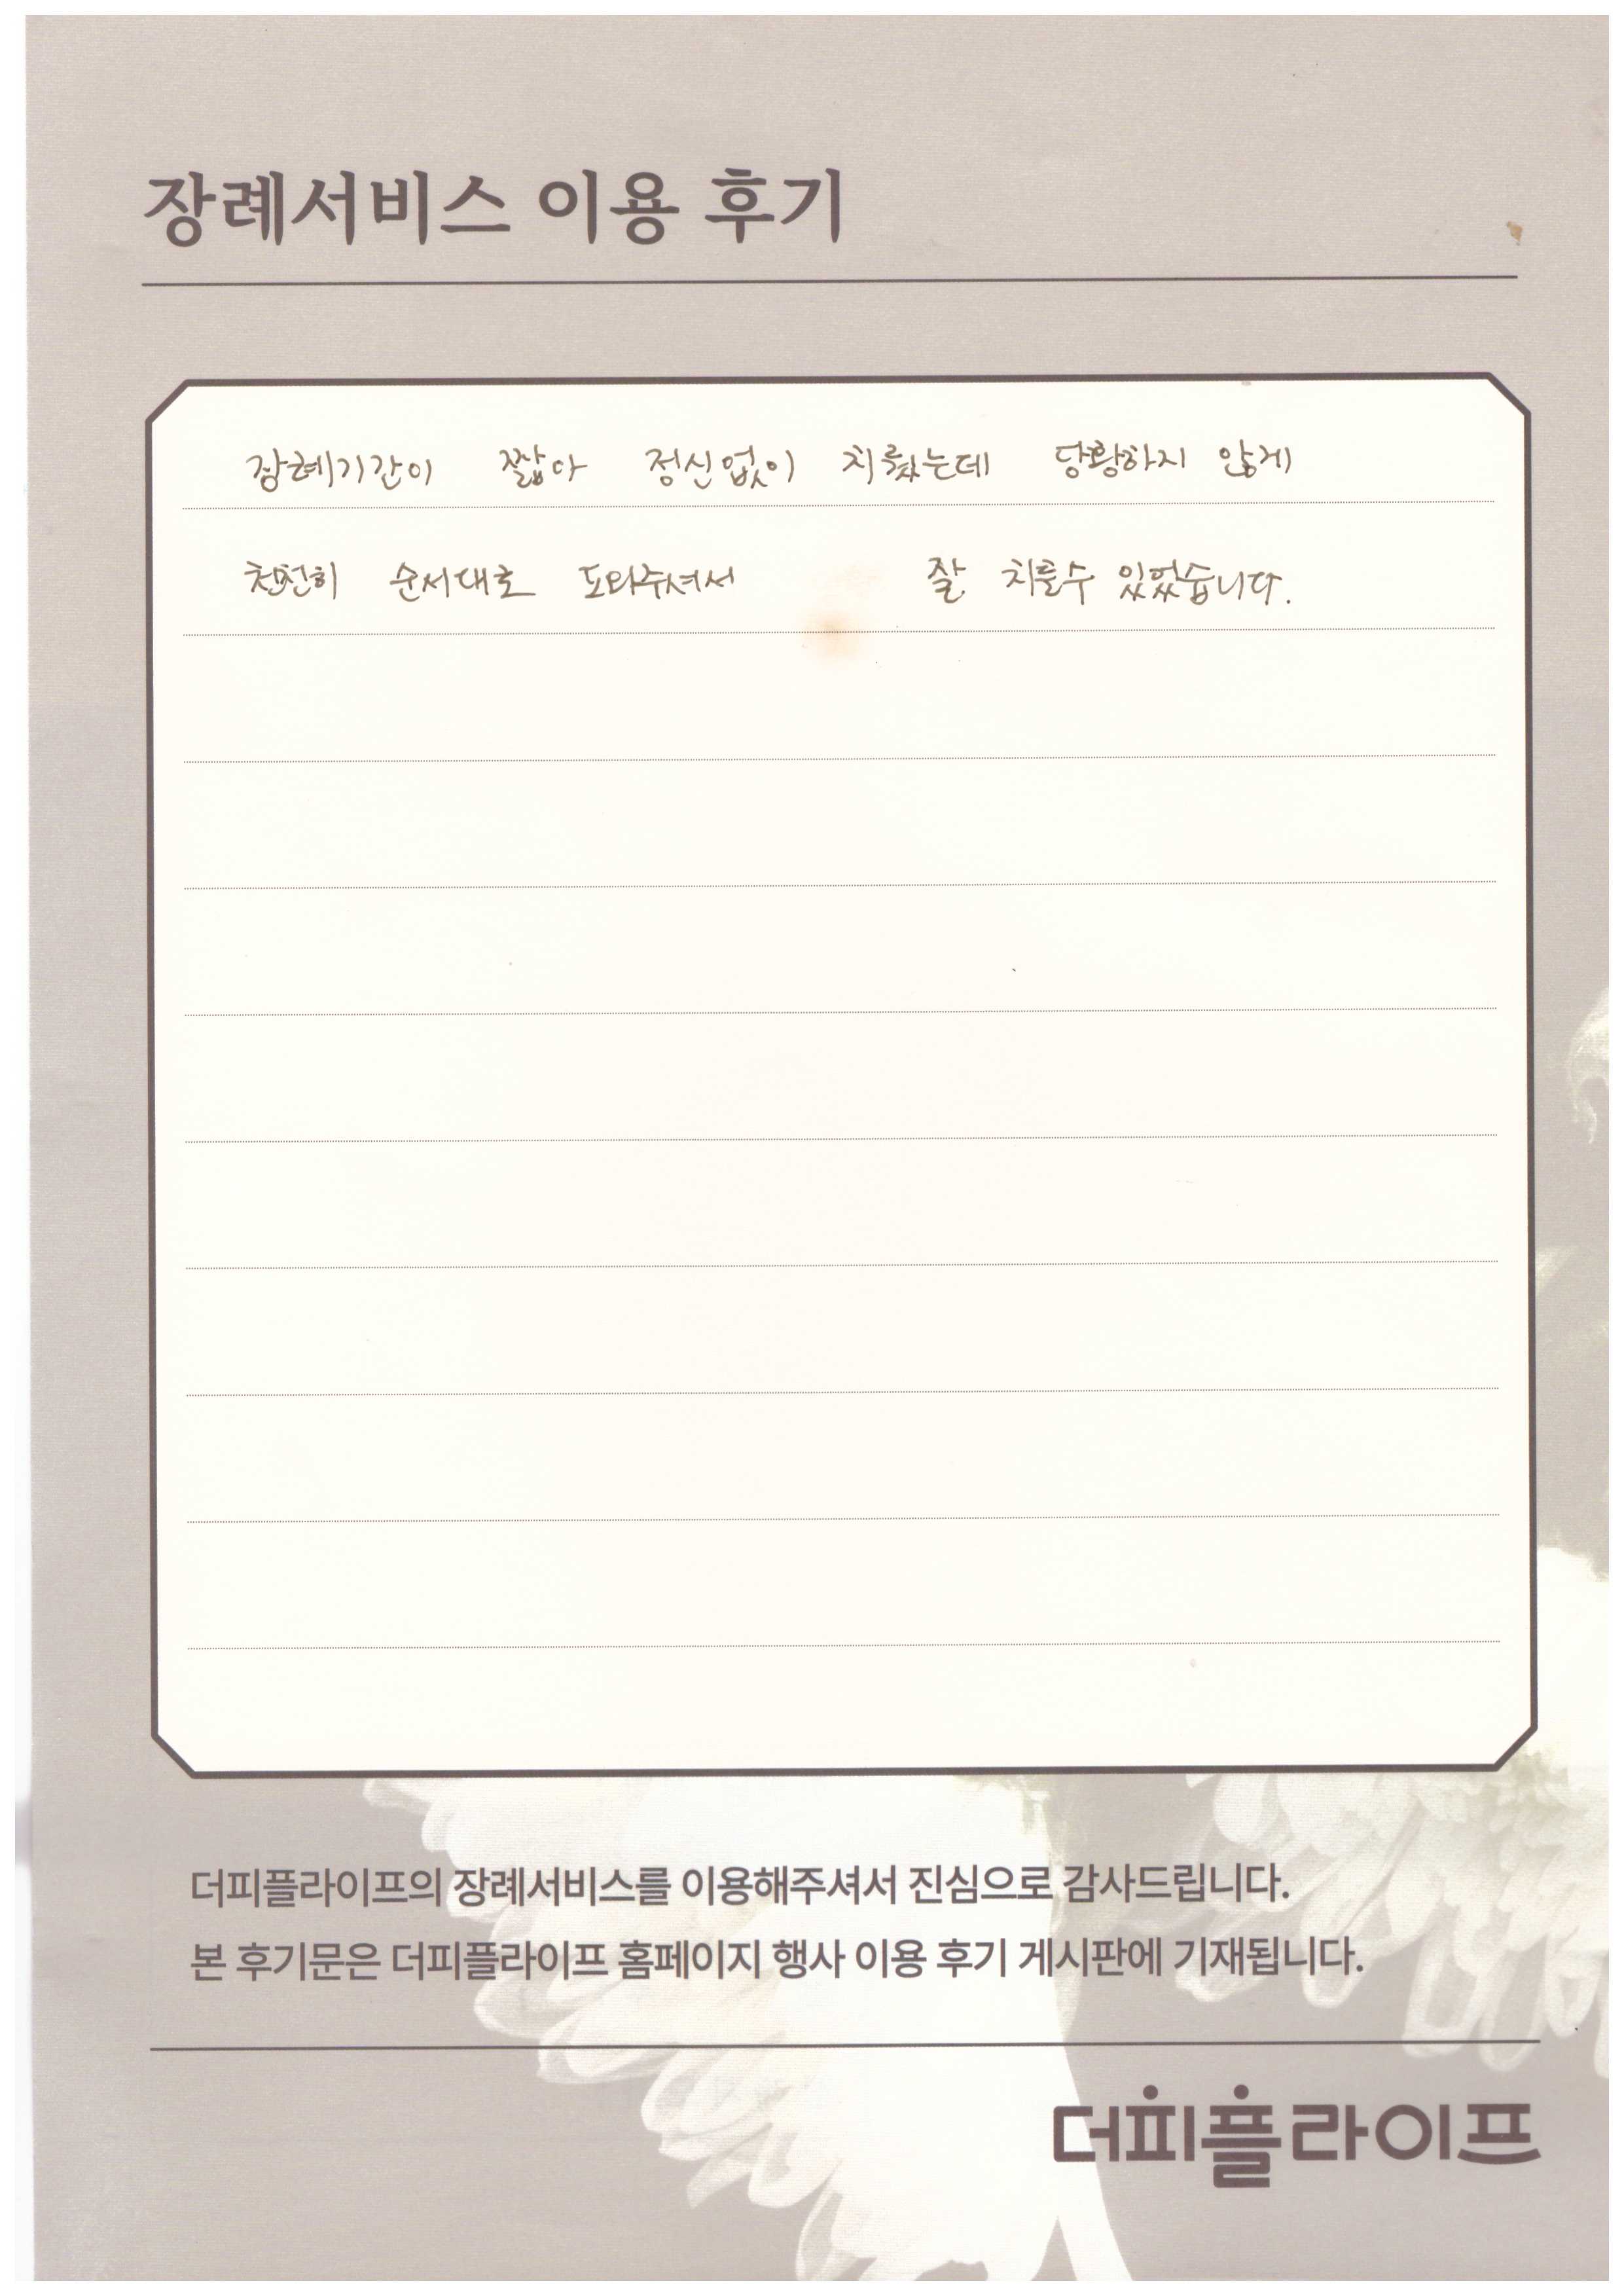 장례서비스 이용 후기
장례기간이 짧아 정신없이 치뤘는데 당황하지 않게
천천히 순서대로 도와주셔서 잘 치를수 있었습니다.
더피플라이프의 장례서비스를 이용해주셔서 진심으로 감사드립니다.
본 후기문은 더피플라이프 홈페이지 행사 이용 후기 게시판에 기재됩니다.
더피플라이프